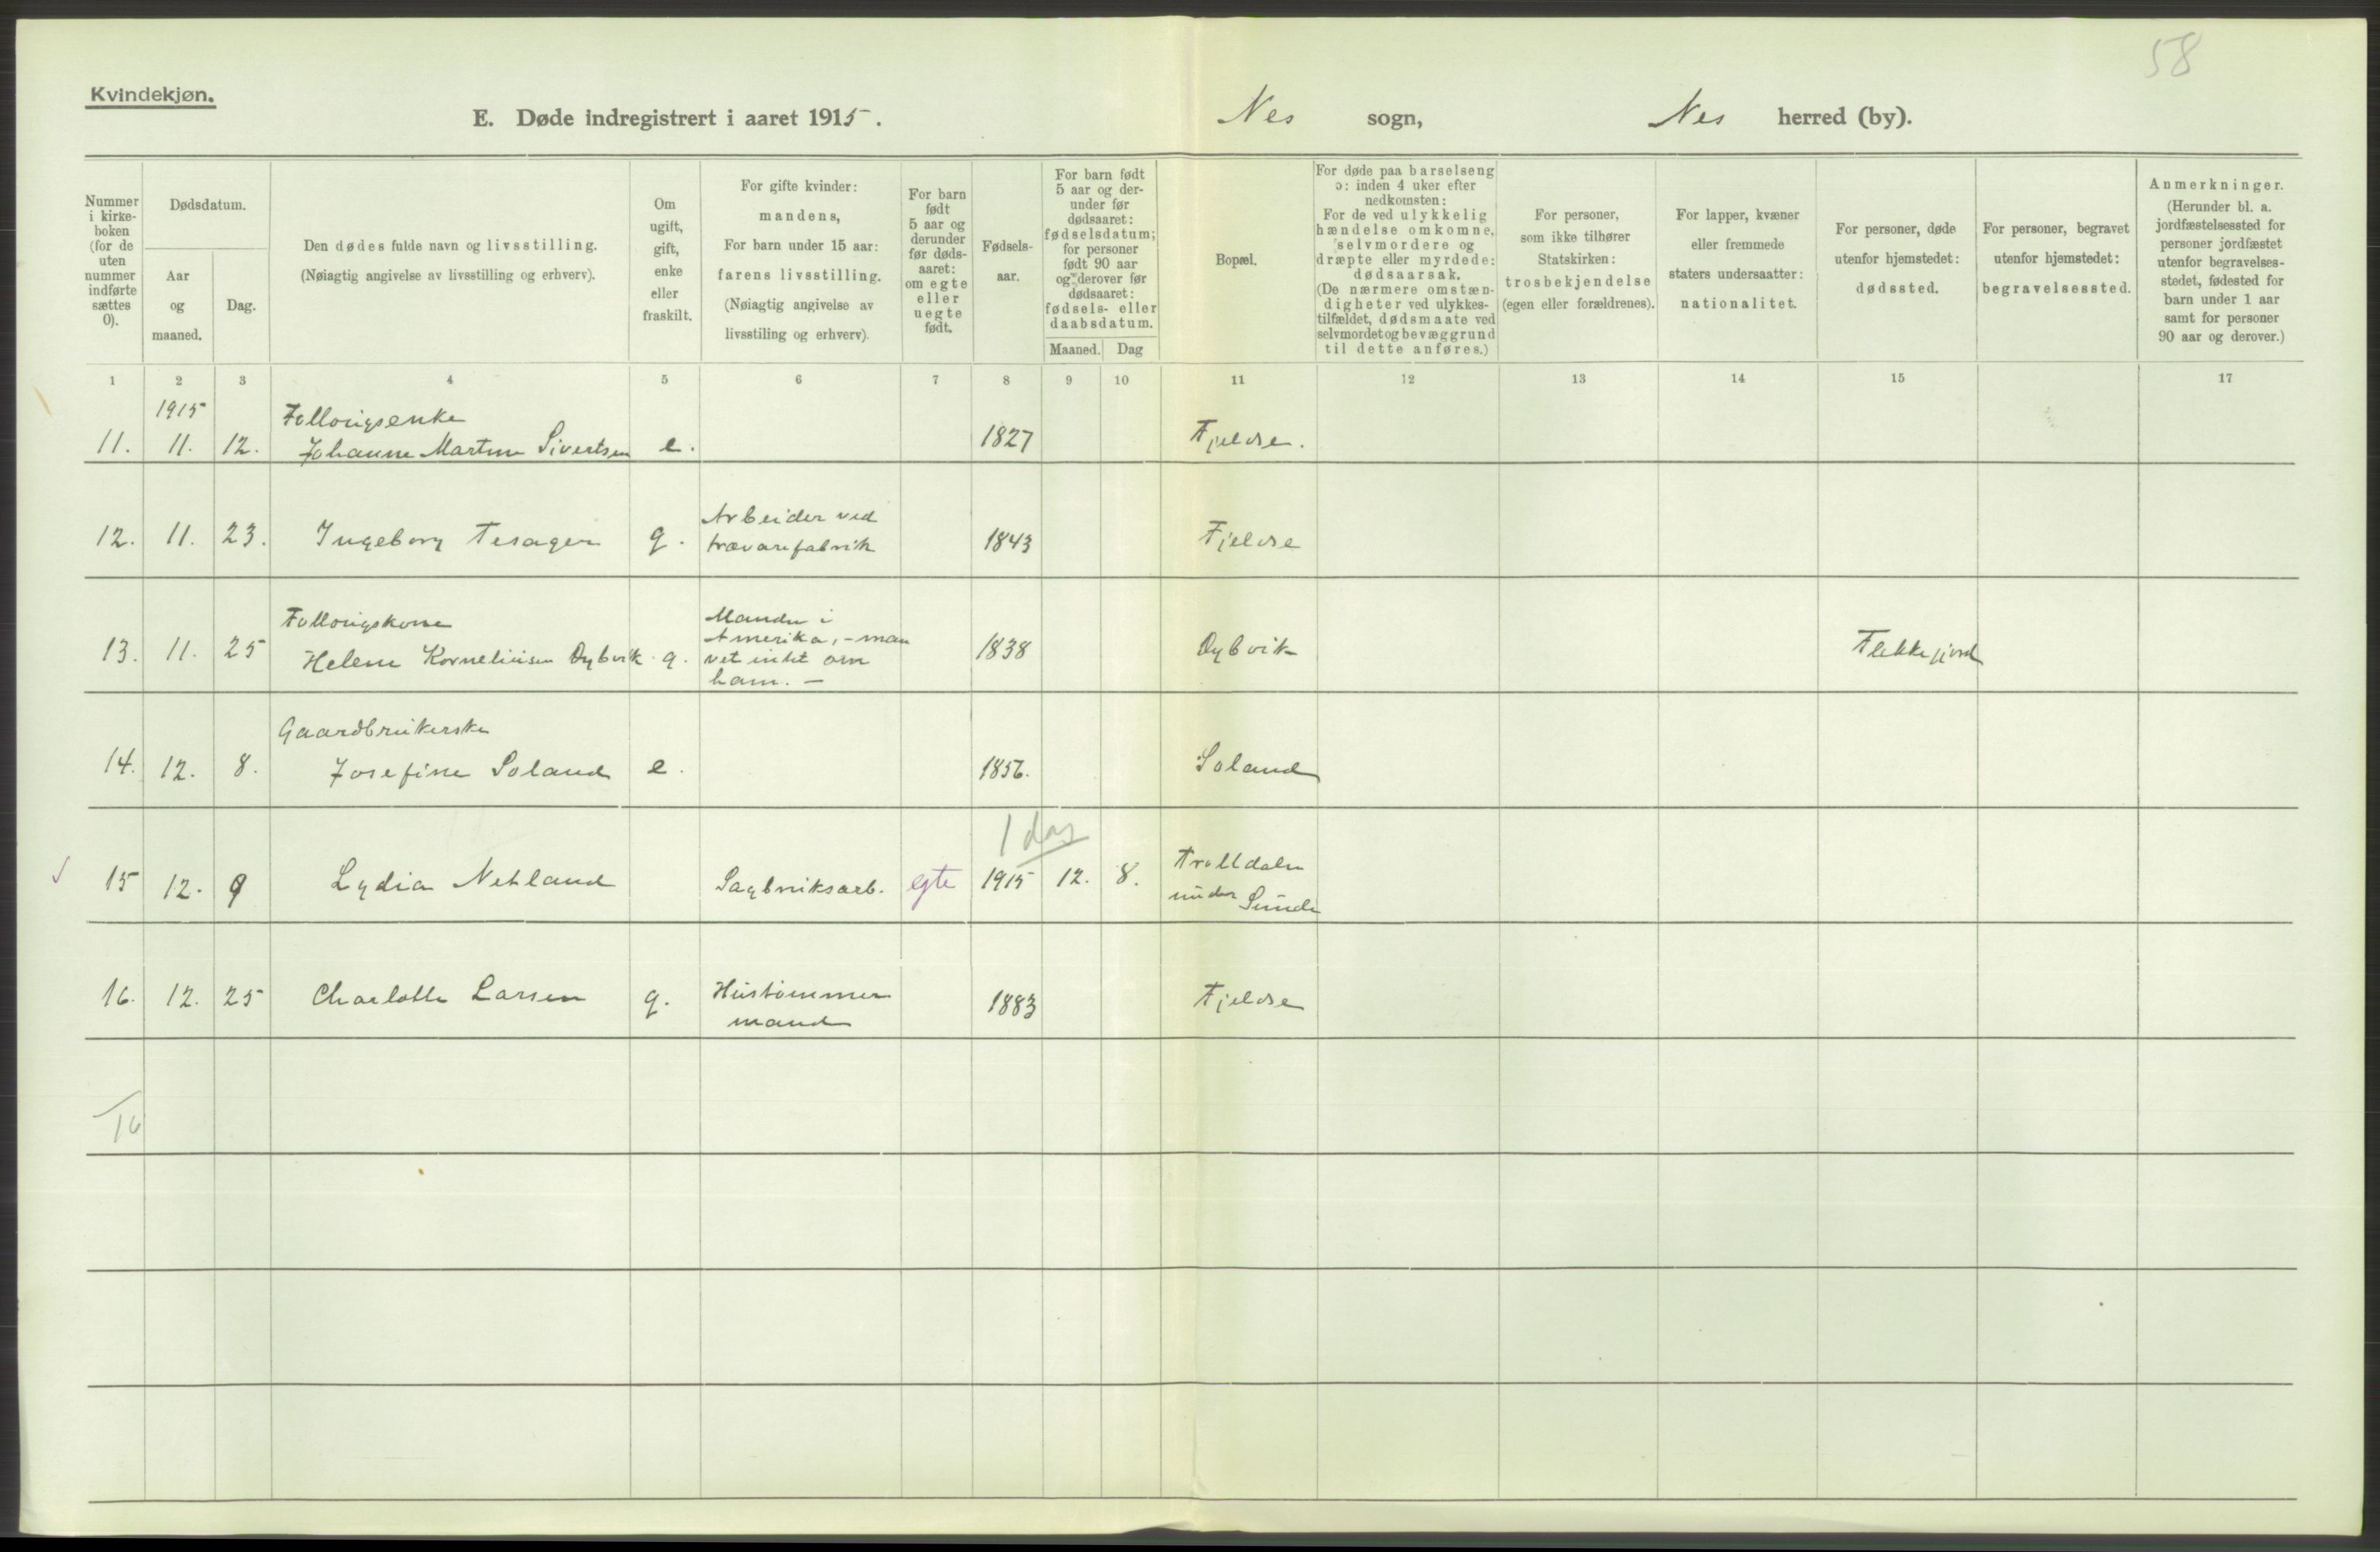 58
Kvindekjøn.
E. Døde indregistrert i aaret 1915.
Nes sogn,
Nes herred (by).
Nummer
i kirke-
boken
(for de
uten
nummer
indførte
sættes
0).
Dødsdatum.
Aar
og
maaned.
Dag.
Den dødes fulde navn og livsstilling.
(Nøiagtig angivelse av livsstilling og erhverv).
Om
ugift,
gift,
enke
eller
fraskilt.
For gifte kvinder:
mandens,
For barn under 15 aar:
farens livsstilling.
(Nøiagtig angivelse av
livsstiling og erhverv).
For barn
født
5 aar og
derunder
før døds-
aaret:
om egte
eller
uegte
født.
Fødsels-
aar.
For barn født
5 aar og der-
under før
dødsaaret:
fødselsdatum;
for personer
født 90 aar
og derover før
dødsaaret:
fødsels- eller
daabsdatum.
Maaned. Dag
Bopæl.
For døde paa barselseng
ɔ: inden 4 uker efter
nedkomsten:
For de ved ulykkelig
hændelse omkomne,
selvmordere og
dræpte eller myrdede:
dødsaarsak.
(De nærmere omstæn-
digheter ved ulykkes-
tilfældet, dødsmaate ved
selvmordet og bevæggrund
til dette anføres.)
For personer,
som ikke tilhører
Statskirken:
trosbekjendelse
(egen eller forældrenes).
For lapper, kvæner
eller fremmede
staters undersaatter:
nationalitet.
For personer, døde
utenfor hjemstedet:
dødssted.
For personer, begravet
utenfor hjemstedet:
begravelsessted.
Anmerkninger.
(Herunder bl. a.
jordfæstelsessted for
personer jordfæstet
utenfor begravelses-
stedet, fødested for
barn under 1 aar
samt for personer
90 aar og derover.)
1 2 3 4 5 6 7 8 9 10 11 12 13 14 15 17
1915 Follougsenke
11. 11. 12. Johanne Martine Sivertsen e. 1827 Fjelse.
Arbeider ved
12. 11. 23. Ingeborg Tesager g. trævarefabrik 1843 Fjelse
Follougskone Manden i
Amerika, - man
13. 11. 25 Helene Korneliusen Dybvik g. vet intet om 1838 Dybvik Flekkefjord
ham. -
Gaardbrukerske
14. 12. 8. Josefine Soland e. 1856. Soland
1 dag
Trolldalen
15 12. 9 Lydia Netland Sagbruksarb. egte 1915 12. 8. under Sunde
16. 12. 25 Charlotte Larsen g. Hustømmer 1883 Fjelse
mand
16